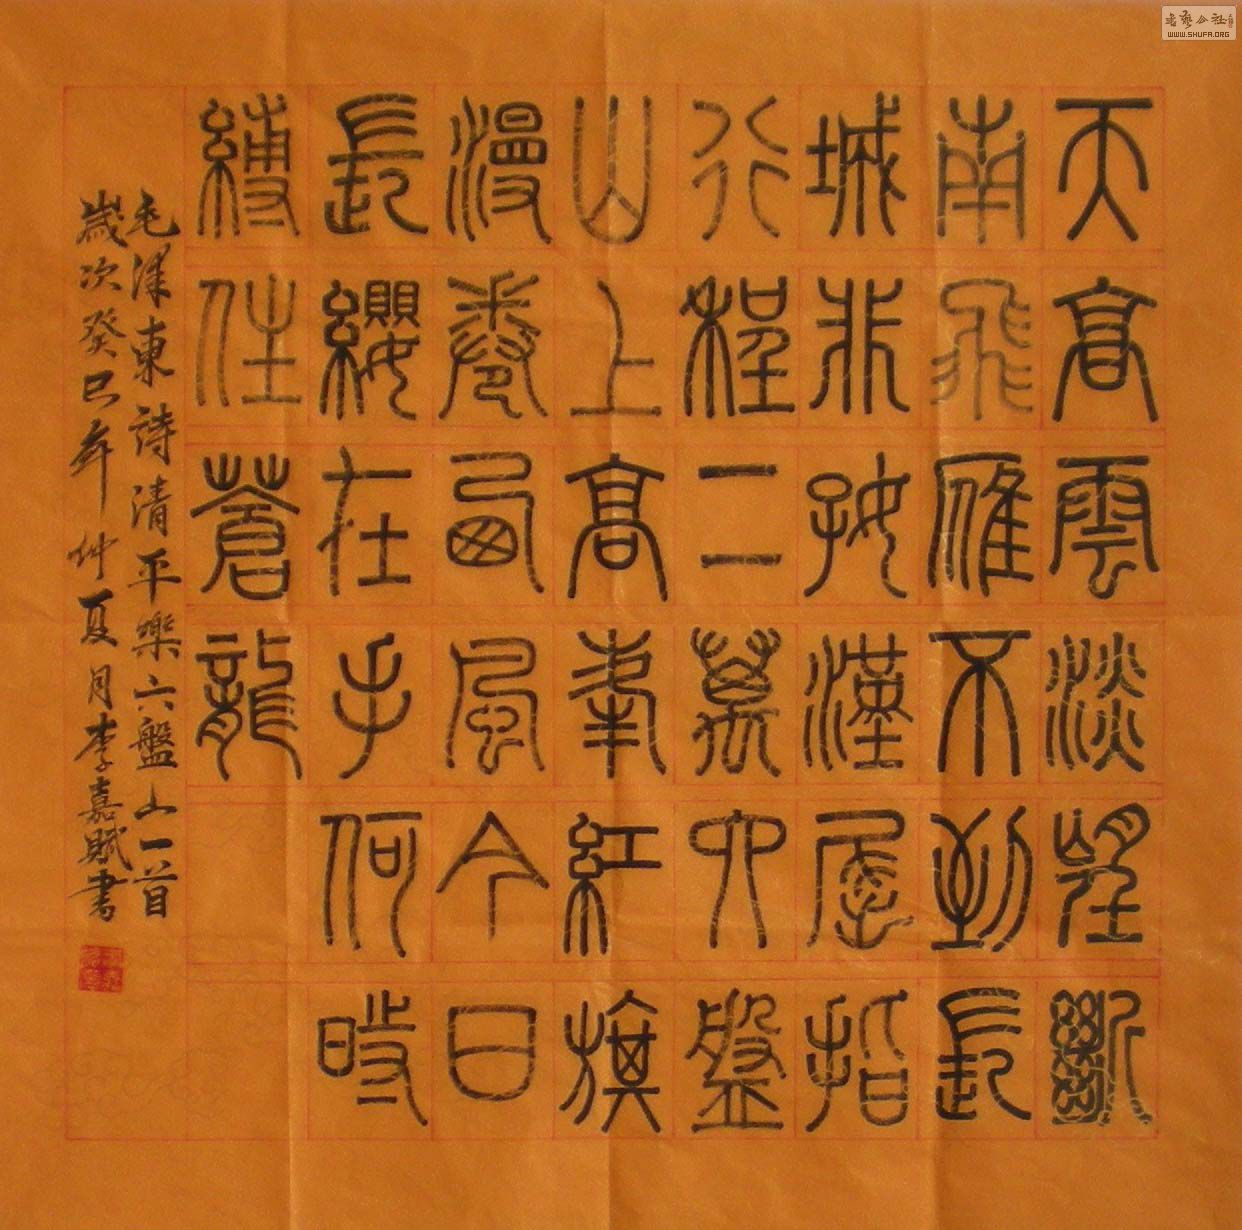 天高雲淡望斷
南飛雁不到長
城非好漢屈指
行程二萬六盤
山上高峯紅旗
漫卷西風今日
長纓在手何時
縛住蒼龍
毛澤東詩清平樂六盤山一首
歲次癸巳年仲夏月李嘉賦書
書藝公社
WWW.SHUFA.ORG